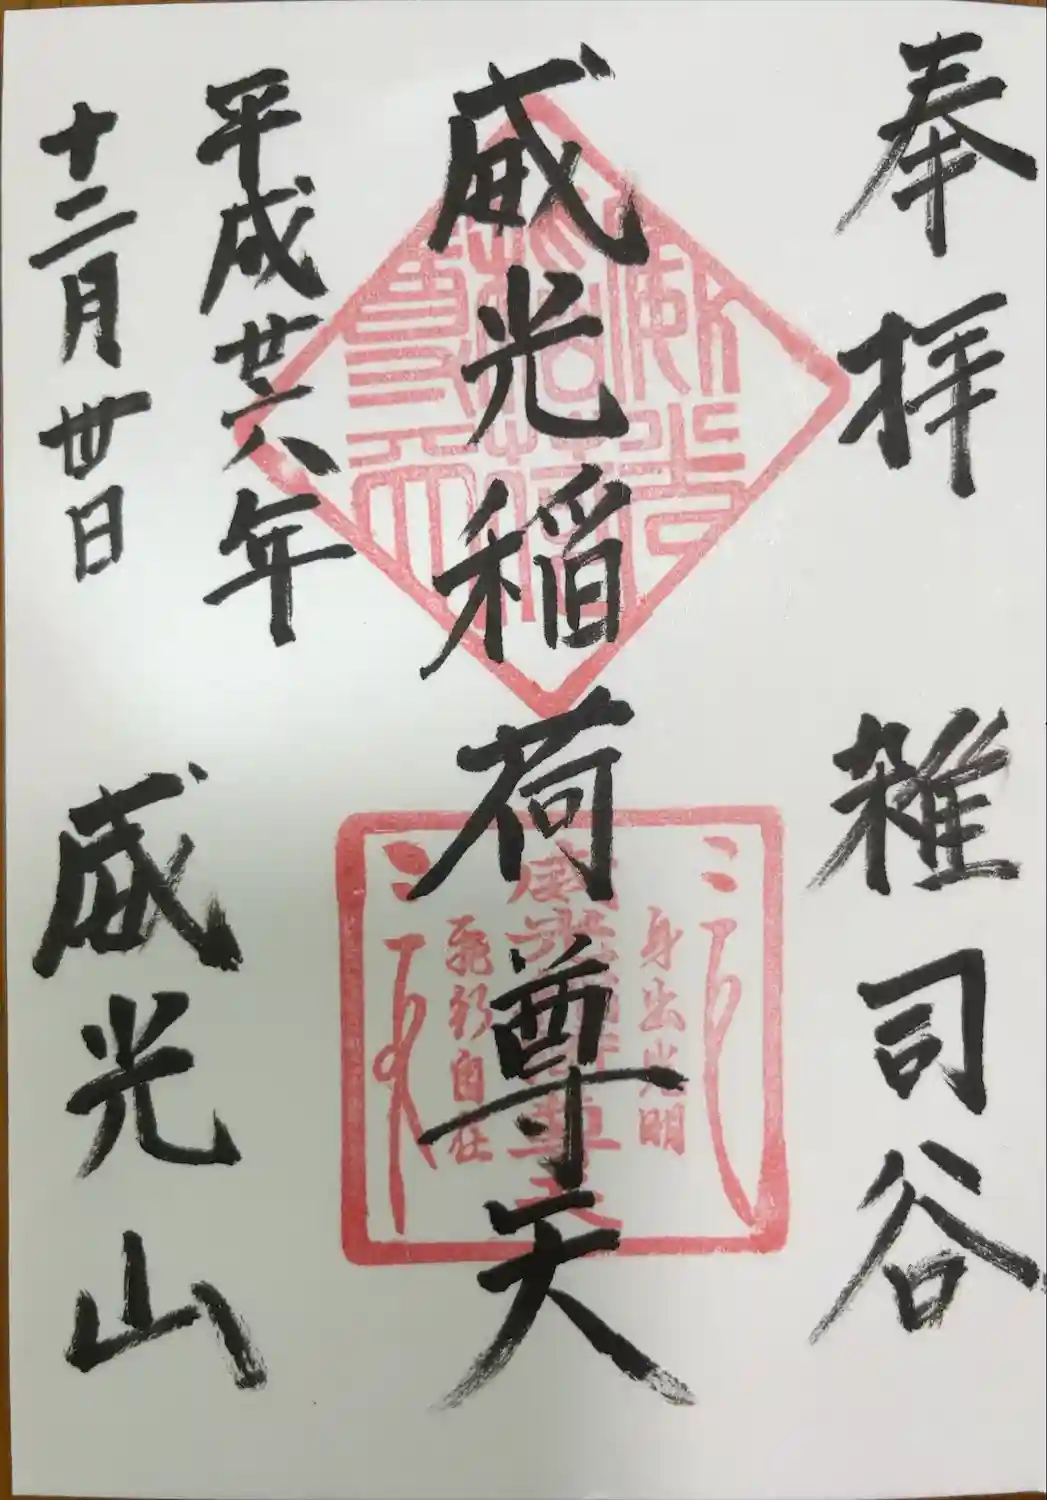 奉拝 雑司谷
威光稲荷尊天
平成廿六年
十二月丗日 威光山
身出光明
飛行自在